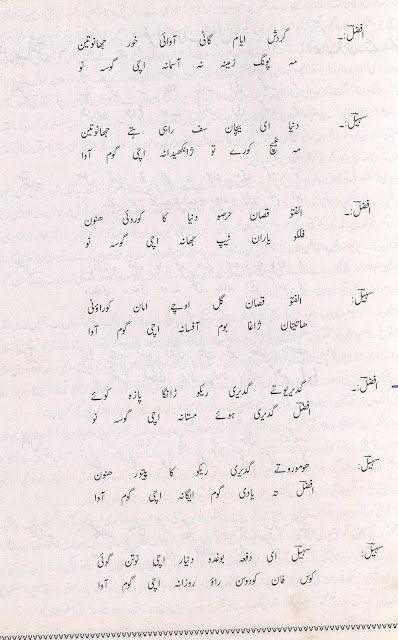 افضل:۔ گردش ایام گانی آوائی خور جھانوتین
مہ پونگ زمینہ نہ آسمانہ اچی گوسہ نو
سہیل:۔ دنیا ای بیجان سف راہی بتے جھانوتین
مہ شیچ کورے تو ژانکھیدانہ اچی گوم آوا
افضل:۔ الفتو قصان حرصو دنیا کا کوروئی ھنون
فلکو یاران ٹیپ جھانہ اچی گوسہ نو
سہیل: الفتو قصان گل اوچے امان کوراؤنی
ھاتیتان ژاغا بوم آفسانہ اچی گوم آوا
افضل:۔ گدیریوتے گدیری ریکو ژانگا پازہ کوئے
افضل گدیری ہوئے مستانہ اچی گوسہ نو
سہیل: ھوموروتے گدیری ریکو کا پیتور ھنون
افضل تہ یادی گوم ایگانہ اچی گوم آوا
سہیل: سہیل ای دفعہ بوغدو دنیار اچی نوتن گوئی
کوس فان کودوسن راؤ روزانہ اچی گوم آوا